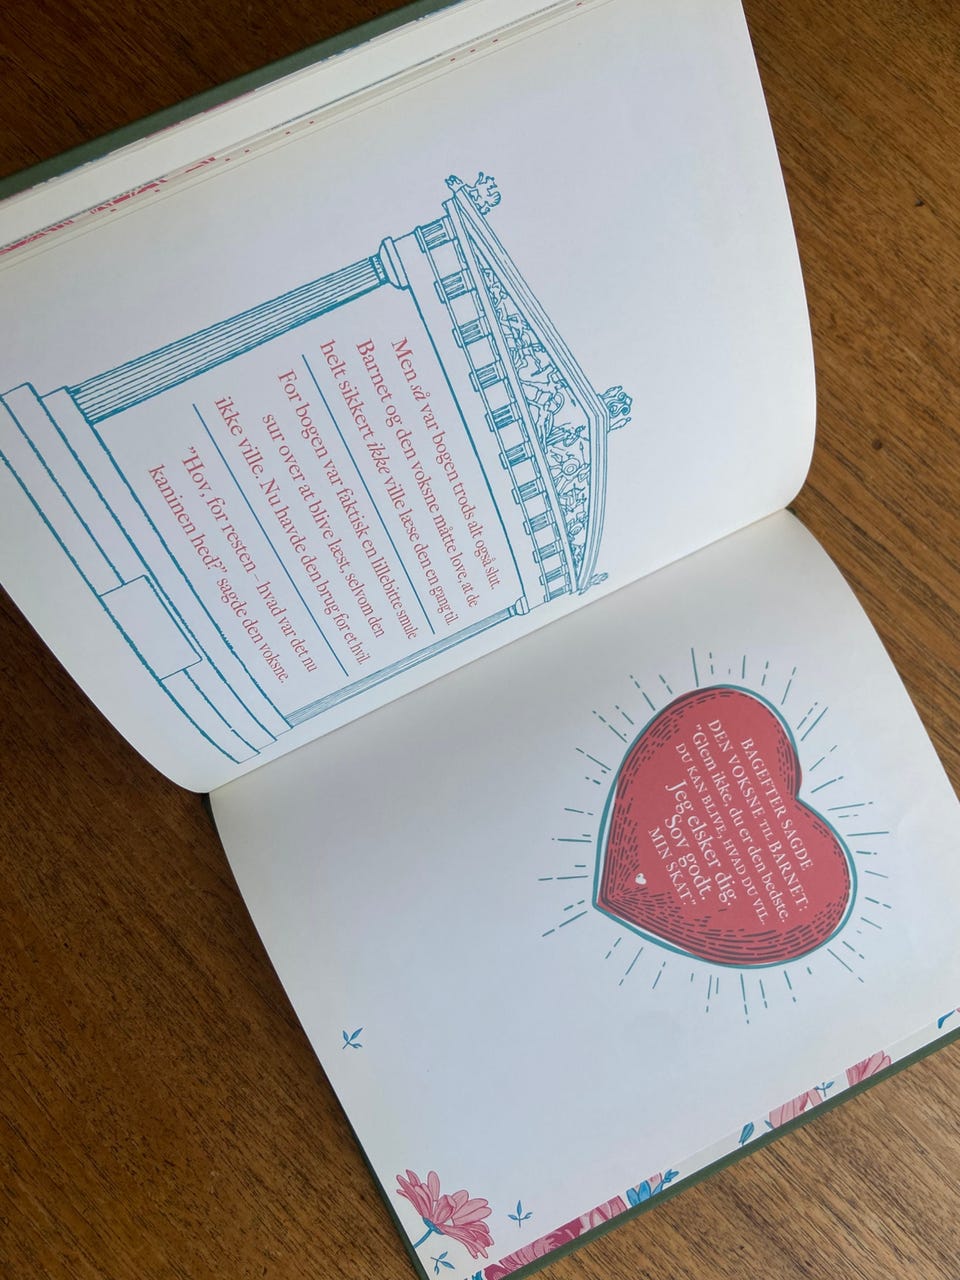 Men så var bogen trods alt også slut.
Barnet og den voksne måtte love, at de
helt sikkert ikke ville læse den en gang til.
For bogen var faktisk en lillebitte smule
sur over at blive læst, selvom den
ikke ville. Nu havde den brug for et hvil.
”Hov, for resten – hvad var det nu
kaninen hed?” sagde den voksne.
BAGEFTER SAGDE
DEN VOKSNE TIL BARNET:
”Glem ikke, du er den bedste.
DU KAN BLIVE, HVAD DU VIL.
Jeg elsker dig.
Sov godt,
MIN SKAT.”